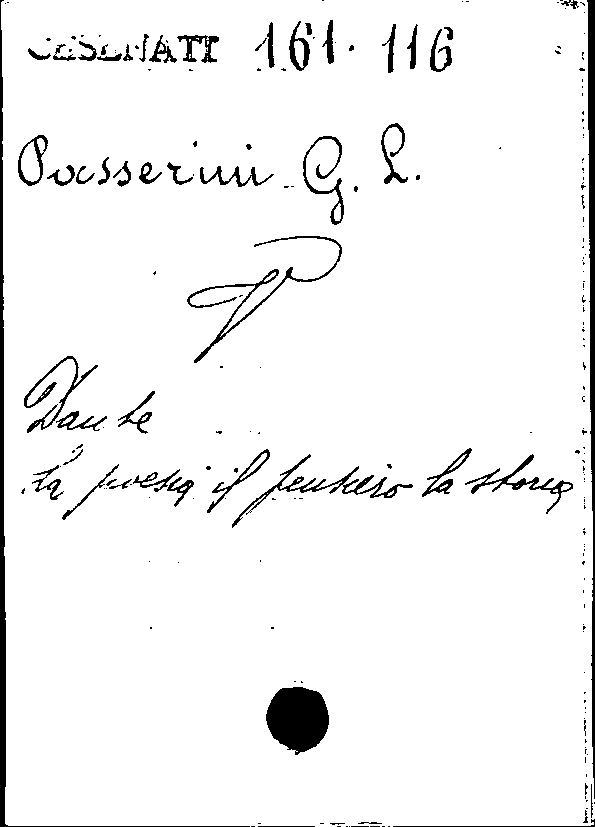 CESENATI 161. 116
Passerini G. L.
V
Dante
la poesia il pensiero la storia